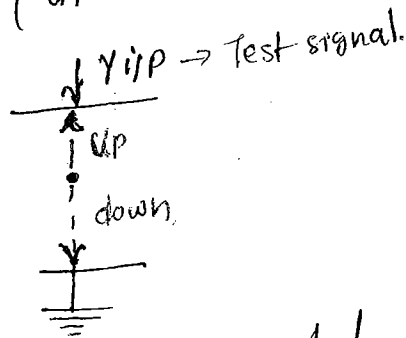 Y i/P → Test signal.
UP
down